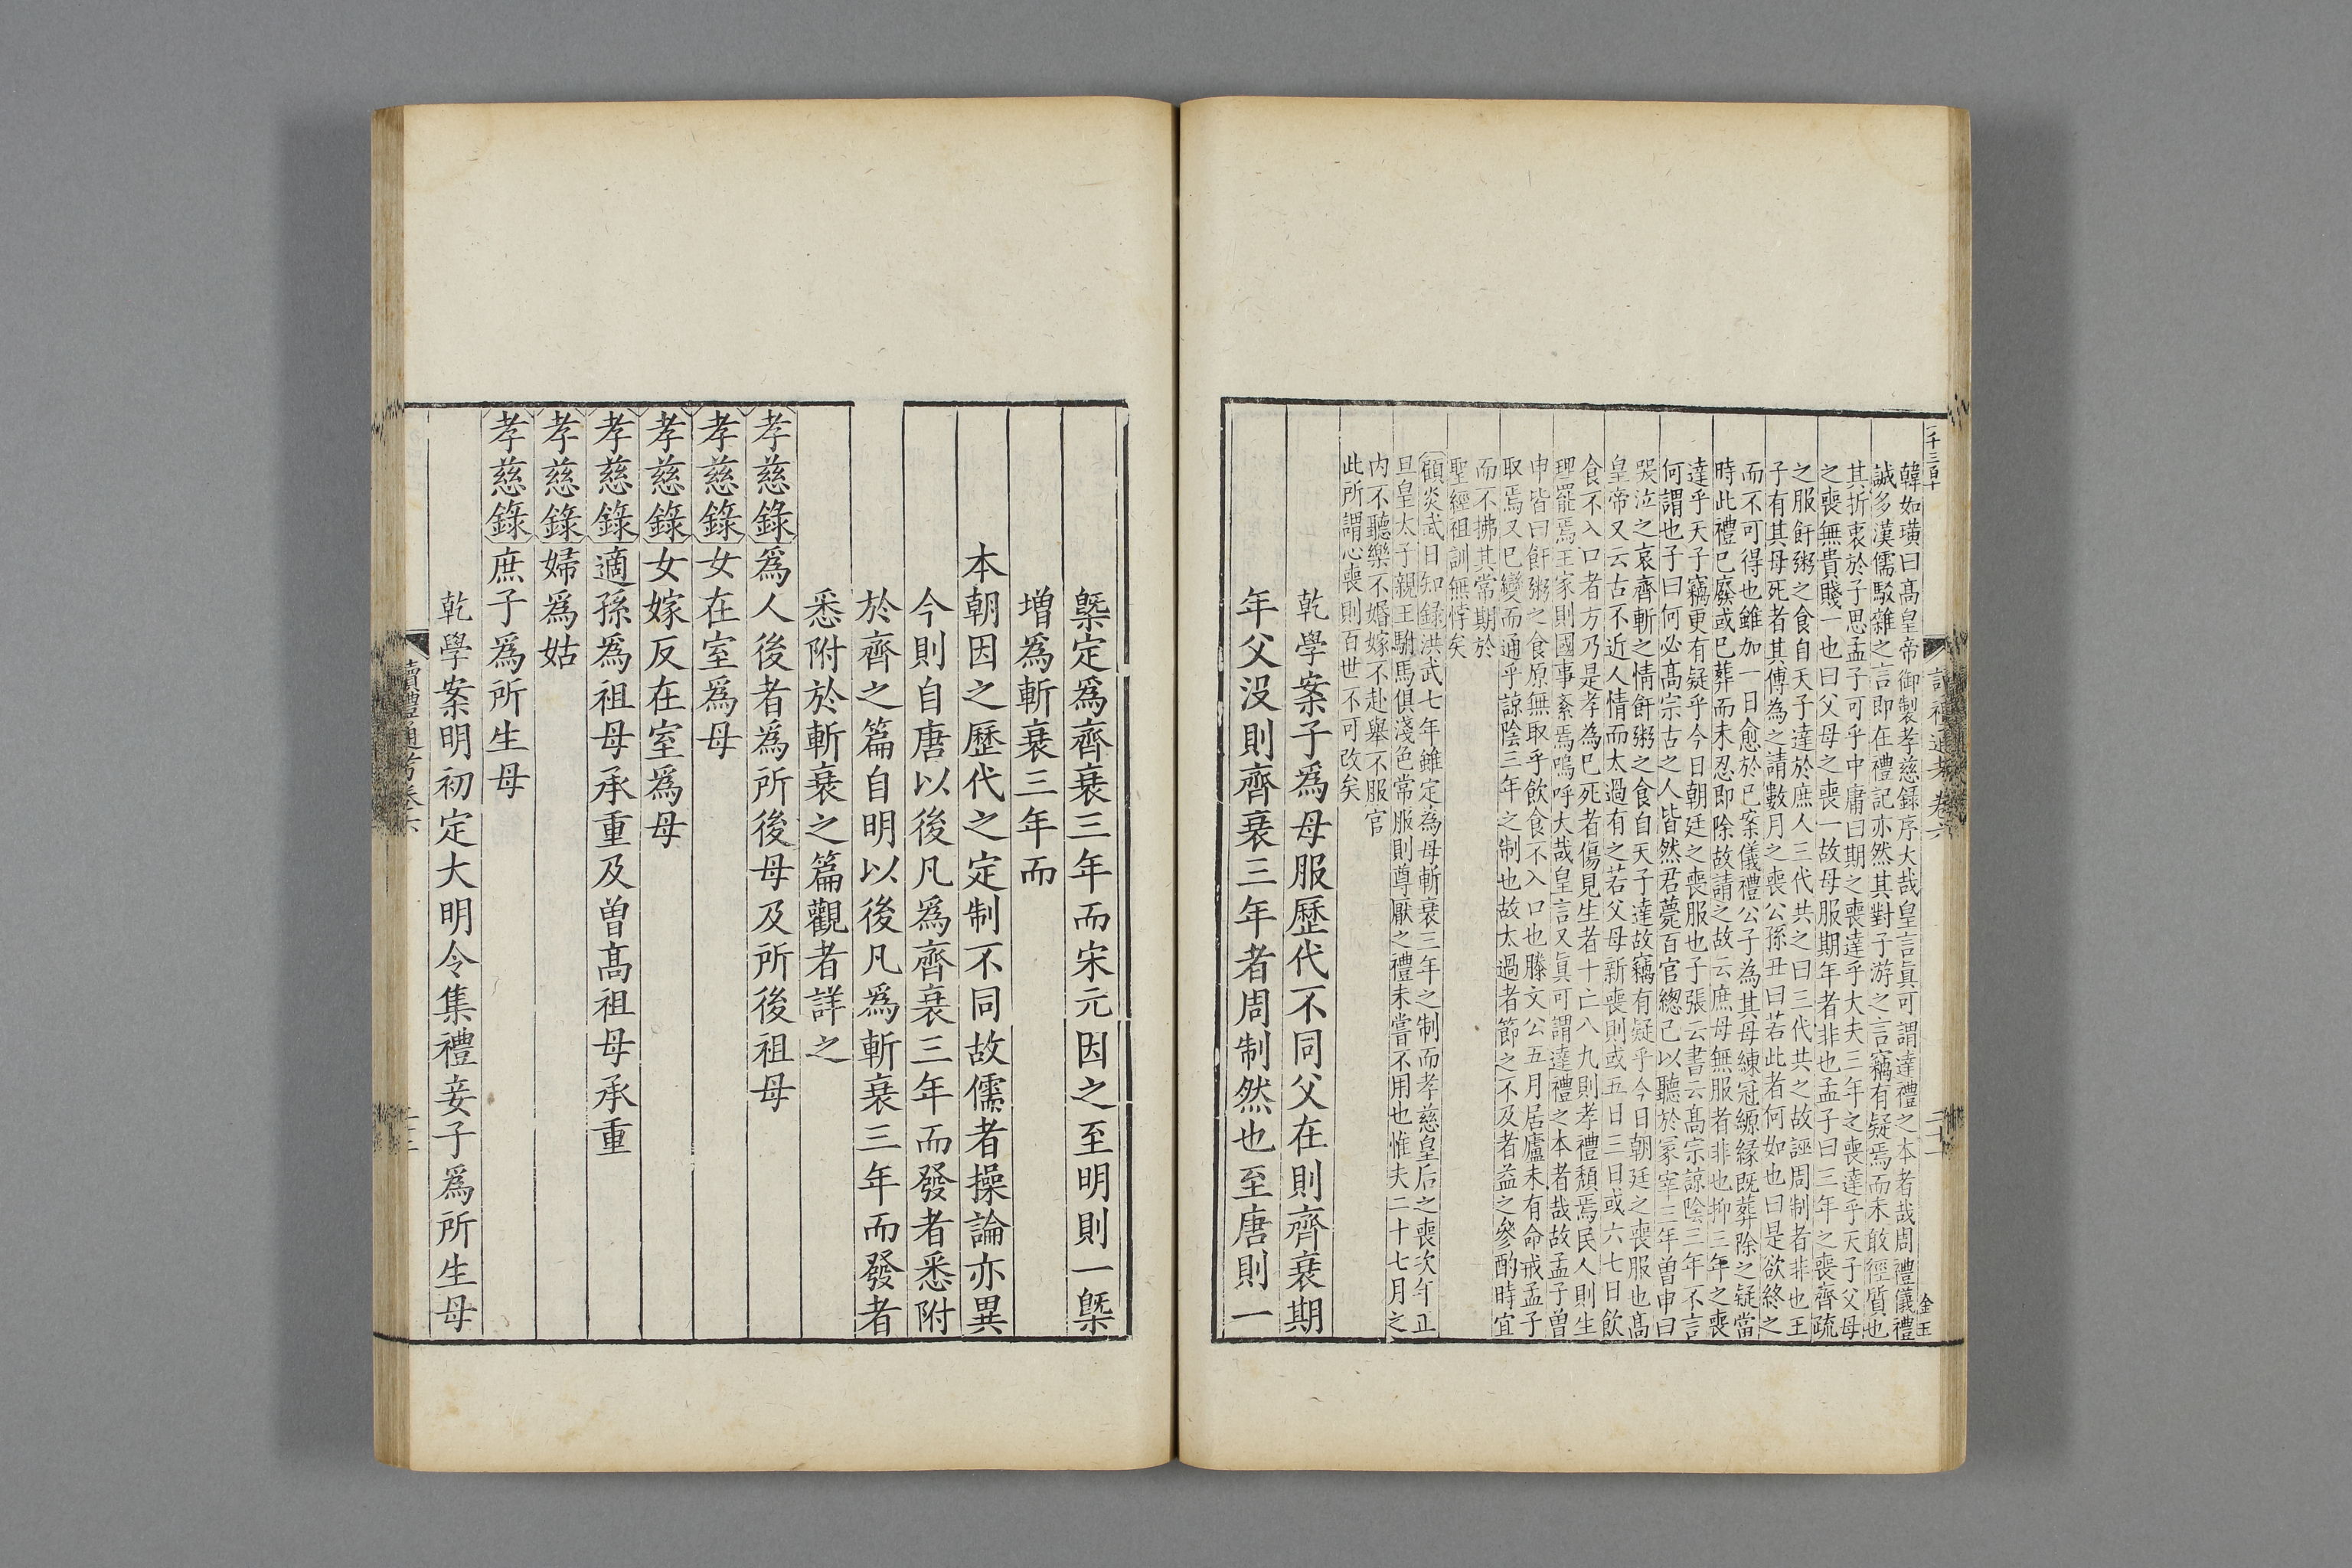 一千三百十
讀禮通考卷六
二十二
金玉
韓如璜曰高皇帝御製孝慈録序大哉皇言眞可謂達禮之本者哉周禮儀禮
誠多漢儒駁雜之言即在禮記亦然其對子游之言竊有疑焉而未敢經質也
其折衷於子思孟子可乎中庸曰期之喪達乎大夫三年之喪達乎天子父母
之喪無貴賤一也曰父母之喪一故母服期年者非也孟子曰三年之喪齊疏
之服飦粥之食自天子達於庶人三代共之曰三代共之故誣周制者非也王
子有其母死者其傅為之請數月之喪公孫丑曰若此者何如也曰是欲終之
而不可得也雖加一日愈於已案儀禮公子為其母練冠縓緣既葬除之疑當
時此禮已廢或已葬而未忍即除故請之故云庶母無服者非也抑三年之喪
達乎天子竊更有疑乎今日朝廷之喪服也子張云書云高宗諒陰三年不言
何謂也子曰何必高宗古之人皆然君薨百官總己以聽於冢宰三年曾申曰
哭泣之哀齊斬之情飦粥之食自天子達故竊有疑乎今日朝廷之喪服也高
皇帝又云古不近人情而太過有之若父母新喪則或五日三日或六七日飲
食不入口者方乃是孝為已死者傷見生者十亡八九則孝禮頽焉民人則生
理罷焉王家則國事紊焉嗚呼大哉皇言又眞可謂達禮之本者哉故孟子曾
申皆曰飦粥之食原無取乎飲食不入口也滕文公五月居廬未有命戒孟子
取焉又已變而通乎諒陰三年之制也故太過者節之不及者益之參酌時宜
而不拂其常期於
聖經祖訓無悖矣
顧炎武日知録洪武七年雖定為母斬衰三年之制而孝慈皇后之喪次年正
旦皇太子親王駙馬俱淺色常服則尊厭之禮未嘗不用也惟夫二十七月之
内不聽樂不婚嫁不赴舉不服官
此所謂心喪則百世不可改矣
乾學案子爲母服歷代不同父在則齊衰期
年父没則齊衰三年者周制然也至唐則一
槩定爲齊衰三年而宋元因之至明則一槩
增爲斬衰三年而
本朝因之歷代之定制不同故儒者操論亦異
今則自唐以後凡爲齊衰三年而發者悉附
於齊之篇自明以後凡爲斬衰三年而發者
悉附於斬衰之篇觀者詳之
孝慈錄爲人後者爲所後母及所後祖母
孝慈錄女在室爲母
孝慈錄女嫁反在室爲母
孝慈錄適孫爲祖母承重及曾高祖母承重
孝慈錄婦爲姑
孝慈錄庶子爲所生母
乾學案明初定大明令集禮妾子爲所生母
讀禮通考卷六